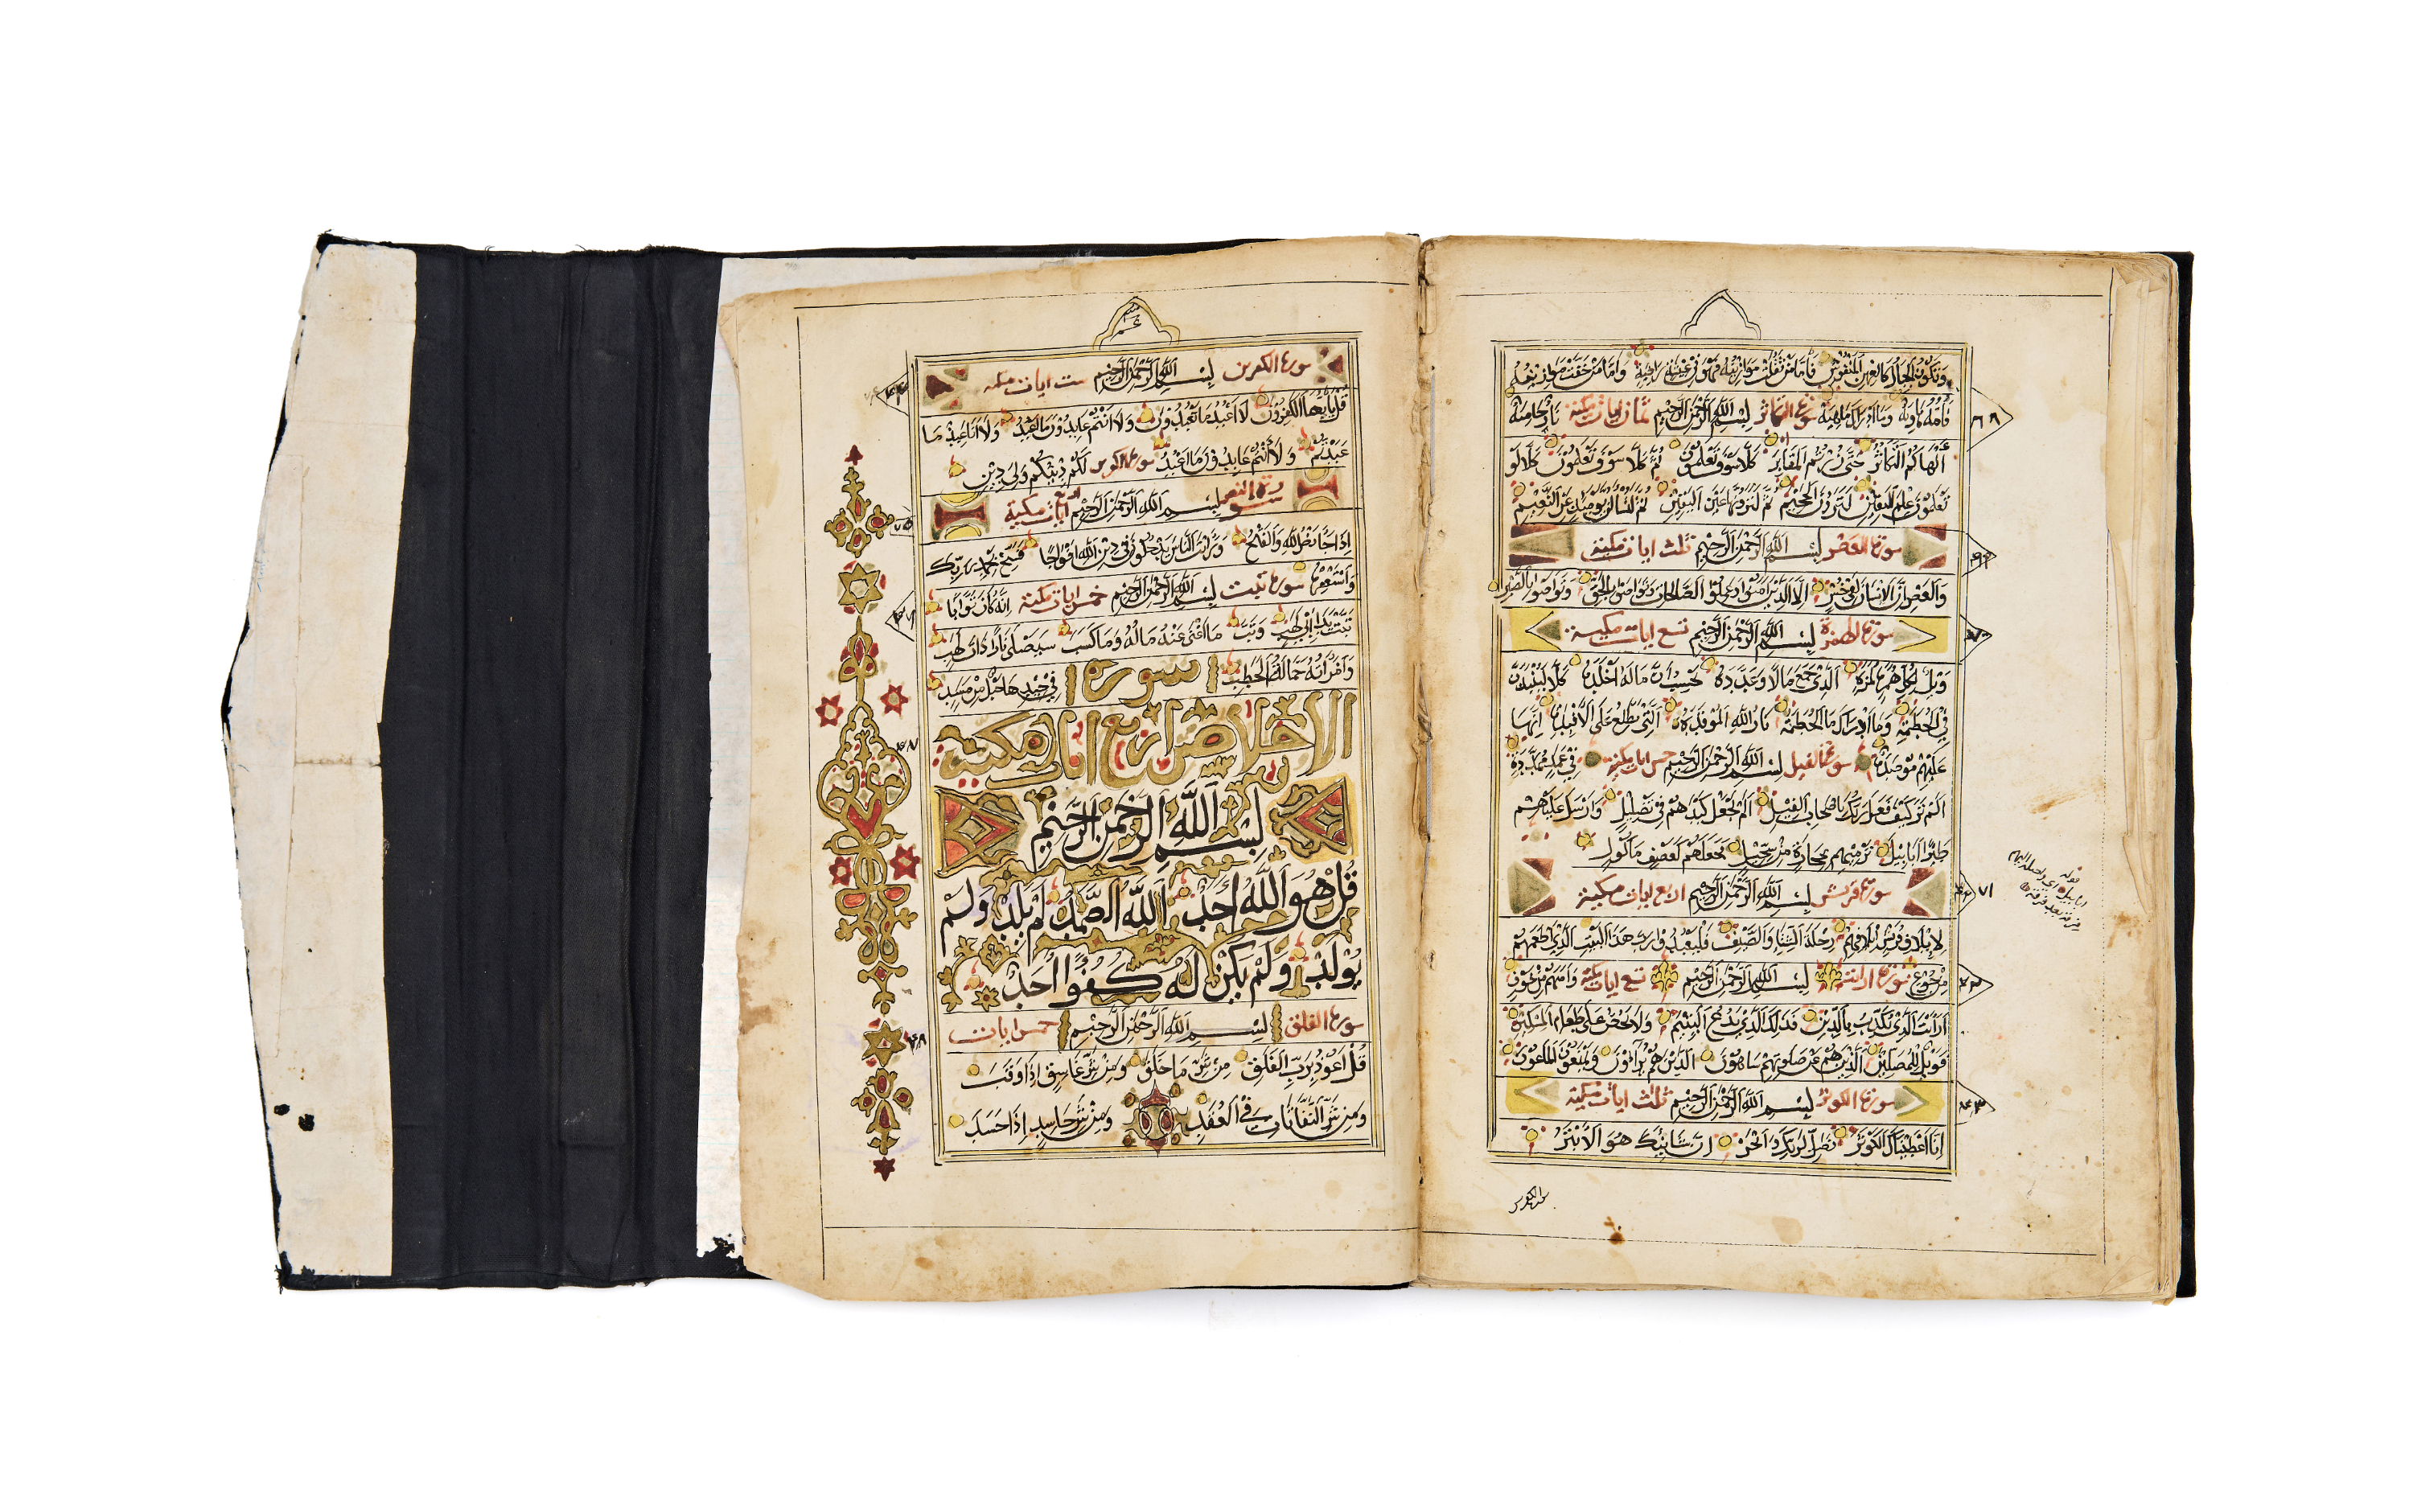 وتكون الجبال كالعهن المنفوش فأما من ثقلت موازينه فهو في عيشة راضية وأما من خفت موازينه
فأمه هاوية وما أدراك ما هيه سورة التكاثر بسم الله الرحمن الرحيم ثمان ايات مكية نار حامية
ألهاكم التكاثر حتى زرتم المقابر كلا سوف تعلمون ثم كلا سوف تعلمون كلا لو
تعلمون علم اليقين لترون الجحيم ثم لترونها عين اليقين ثم لتسألن يومئذ عن النعيم
سورة العصر بسم الله الرحمن الرحيم ثلث ايات مكية
والعصر إن الإنسان لفي خسر إلا الذين آمنوا وعملوا الصالحات وتواصوا بالحق وتواصوا بالصبر
سورة الهمزة بسم الله الرحمن الرحيم تسع ايات مكية
ويل لكل همزة لمزة الذي جمع مالا وعدده يحسب أن ماله أخلده كلا لينبذن
في الحطمة وما أدراك ما الحطمة نار الله الموقدة التي تطلع على الأفئدة إنها
عليهم موصدة سورة الفيل بسم الله الرحمن الرحيم خمس ايات مكية في عمد ممددة
ألم تر كيف فعل ربك بأصحاب الفيل ألم يجعل كيدهم في تضليل وأرسل عليهم
طيرا أبابيل ترميهم بحجارة من سجيل فجعلهم كعصف مأكول
سورة قريش بسم الله الرحمن الرحيم اربع ايات مكية
٧١
لإيلاف قريش إيلافهم رحلة الشتاء والصيف فليعبدوا رب هذا البيت الذي أطعمهم
من جوع سورة ارايت بسم الله الرحمن الرحيم تسع ايات مكية وآمنهم من خوف
أرأيت الذي يكذب بالدين فذلك الذي يدع اليتيم ولا يحض على طعام المسكين
فويل للمصلين الذين هم عن صلاتهم ساهون الذين هم يراؤن ويمنعون الماعون
سورة الكوثر بسم الله الرحمن الرحيم ثلث ايات مكية
إنا أعطيناك الكوثر فصل لربك وانحر إن شانئك هو الأبتر
سورة الكفرين بسم الله الرحمن الرحيم ست ايات مكية
قل يا أيها الكفرون لا أعبد ما تعبدون ولا أنتم عابدون ما أعبد ولا أنا عابد ما
عبدتم ولا أنتم عابدون ما أعبد لكم دينكم ولي دين
سورة النصر بسم الله الرحمن الرحيم ايات مكية
إذا جاء نصر الله والفتح ورأيت الناس يدخلون في دين الله أفواجا فسبح بحمد ربك
واستغفره سورة تبت بسم الله الرحمن الرحيم خمس ايات مكية إنه كان توابا
تبت يدا أبي لهب وتب ما أغنى عنه ماله وما كسب سيصلى نارا ذات لهب
وامرأته حمالة الحطب سورة في جيدها حبل من مسد
الاخلاص اربع ايات مكية
بسم الله الرحمن الرحيم
قل هو الله أحد الله الصمد لم يلد ولم
يولد ولم يكن له كفوا أحد
سورة الفلق بسم الله الرحمن الرحيم خمس ايات
قل أعوذ برب الفلق من شر ما خلق ومن شر غاسق إذا وقب
ومن شر النفاثات في العقد ومن شر حاسد إذا حسد